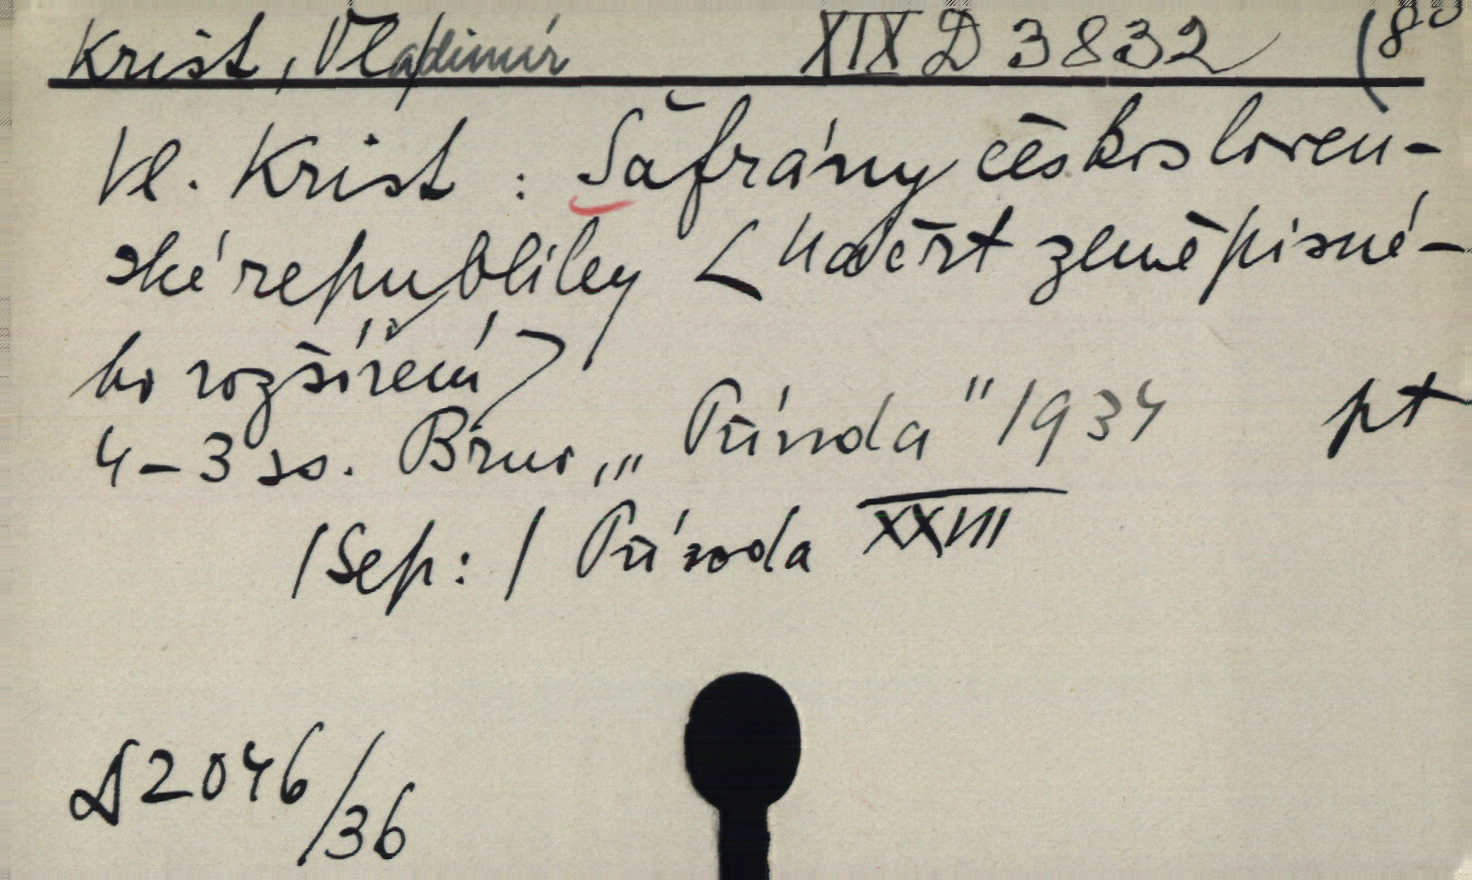 Krist, Vladimír XIX D 3832 (8°
Vl. Krist : Šafrány českosloven-
ské republiky <Náčrt zeměpisné-
ho rozšíření>
4-3 ss. Brno, „Příroda" 1934 pt
/Sep: / Příroda XXVII
D 2046/36